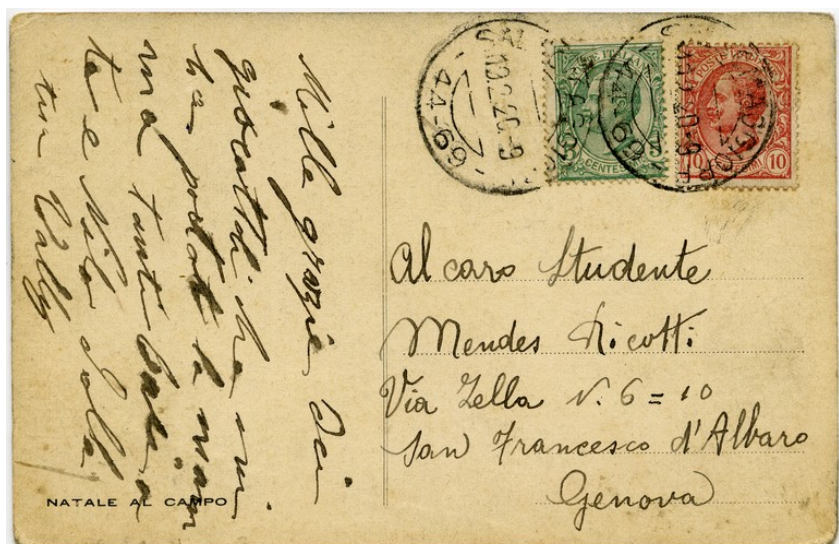 Mille grazie dei
giocattoli che mi
ha portato la mam
ma tanti baci a
te e Nilo dalla
tua Wally
NATALE AL CAMPO
10.2.20-9
44-69
POSTE ITALIANE
CENTESIMI
44-69
MAGGIORE
POSTE ITALIANE
10 10
Al caro Studente
Mendes Ricotti
Via Zella N. 6=10
San Francesco d'Albaro
Genova